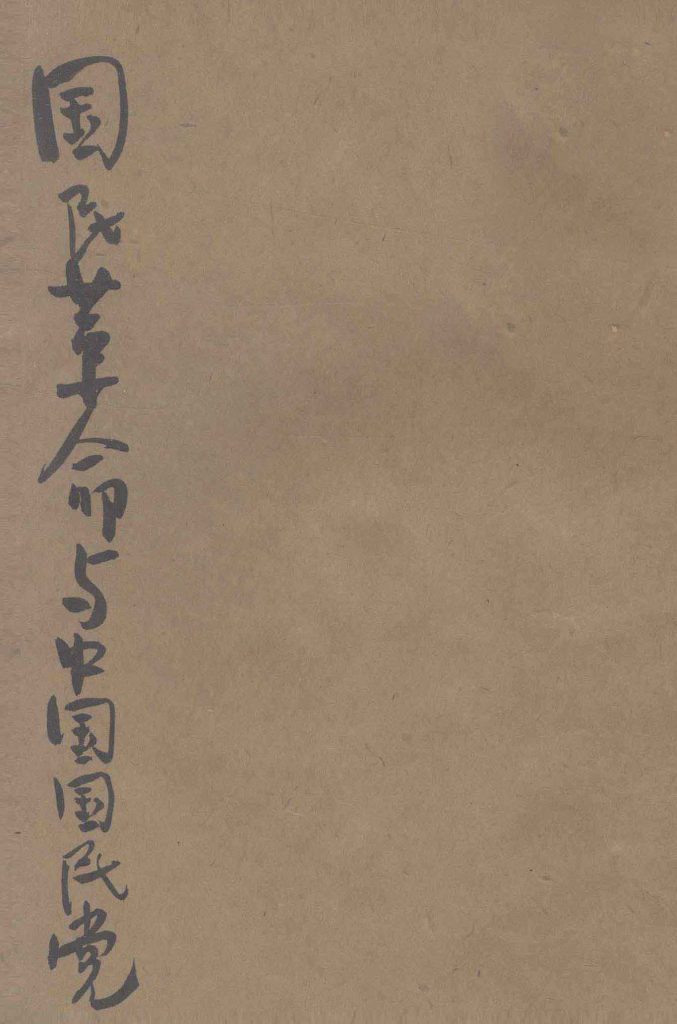 国民革命与中国国民党